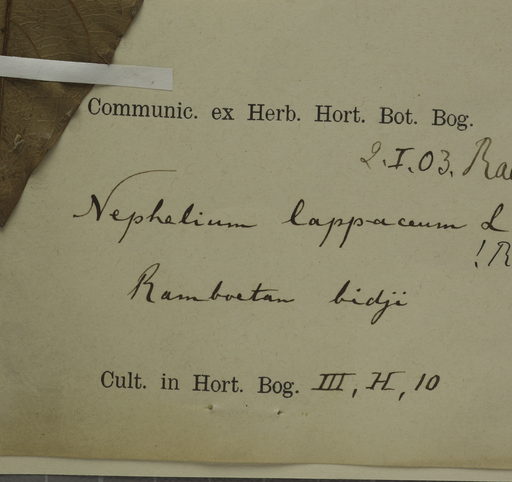 Communic. ex Herb. Hort. Bot. Bog.
2.I.03. Ra
Nephelium lappaceum L
! R
Ramboetan bidji
Cult. in Hort. Bog. III, H, 10